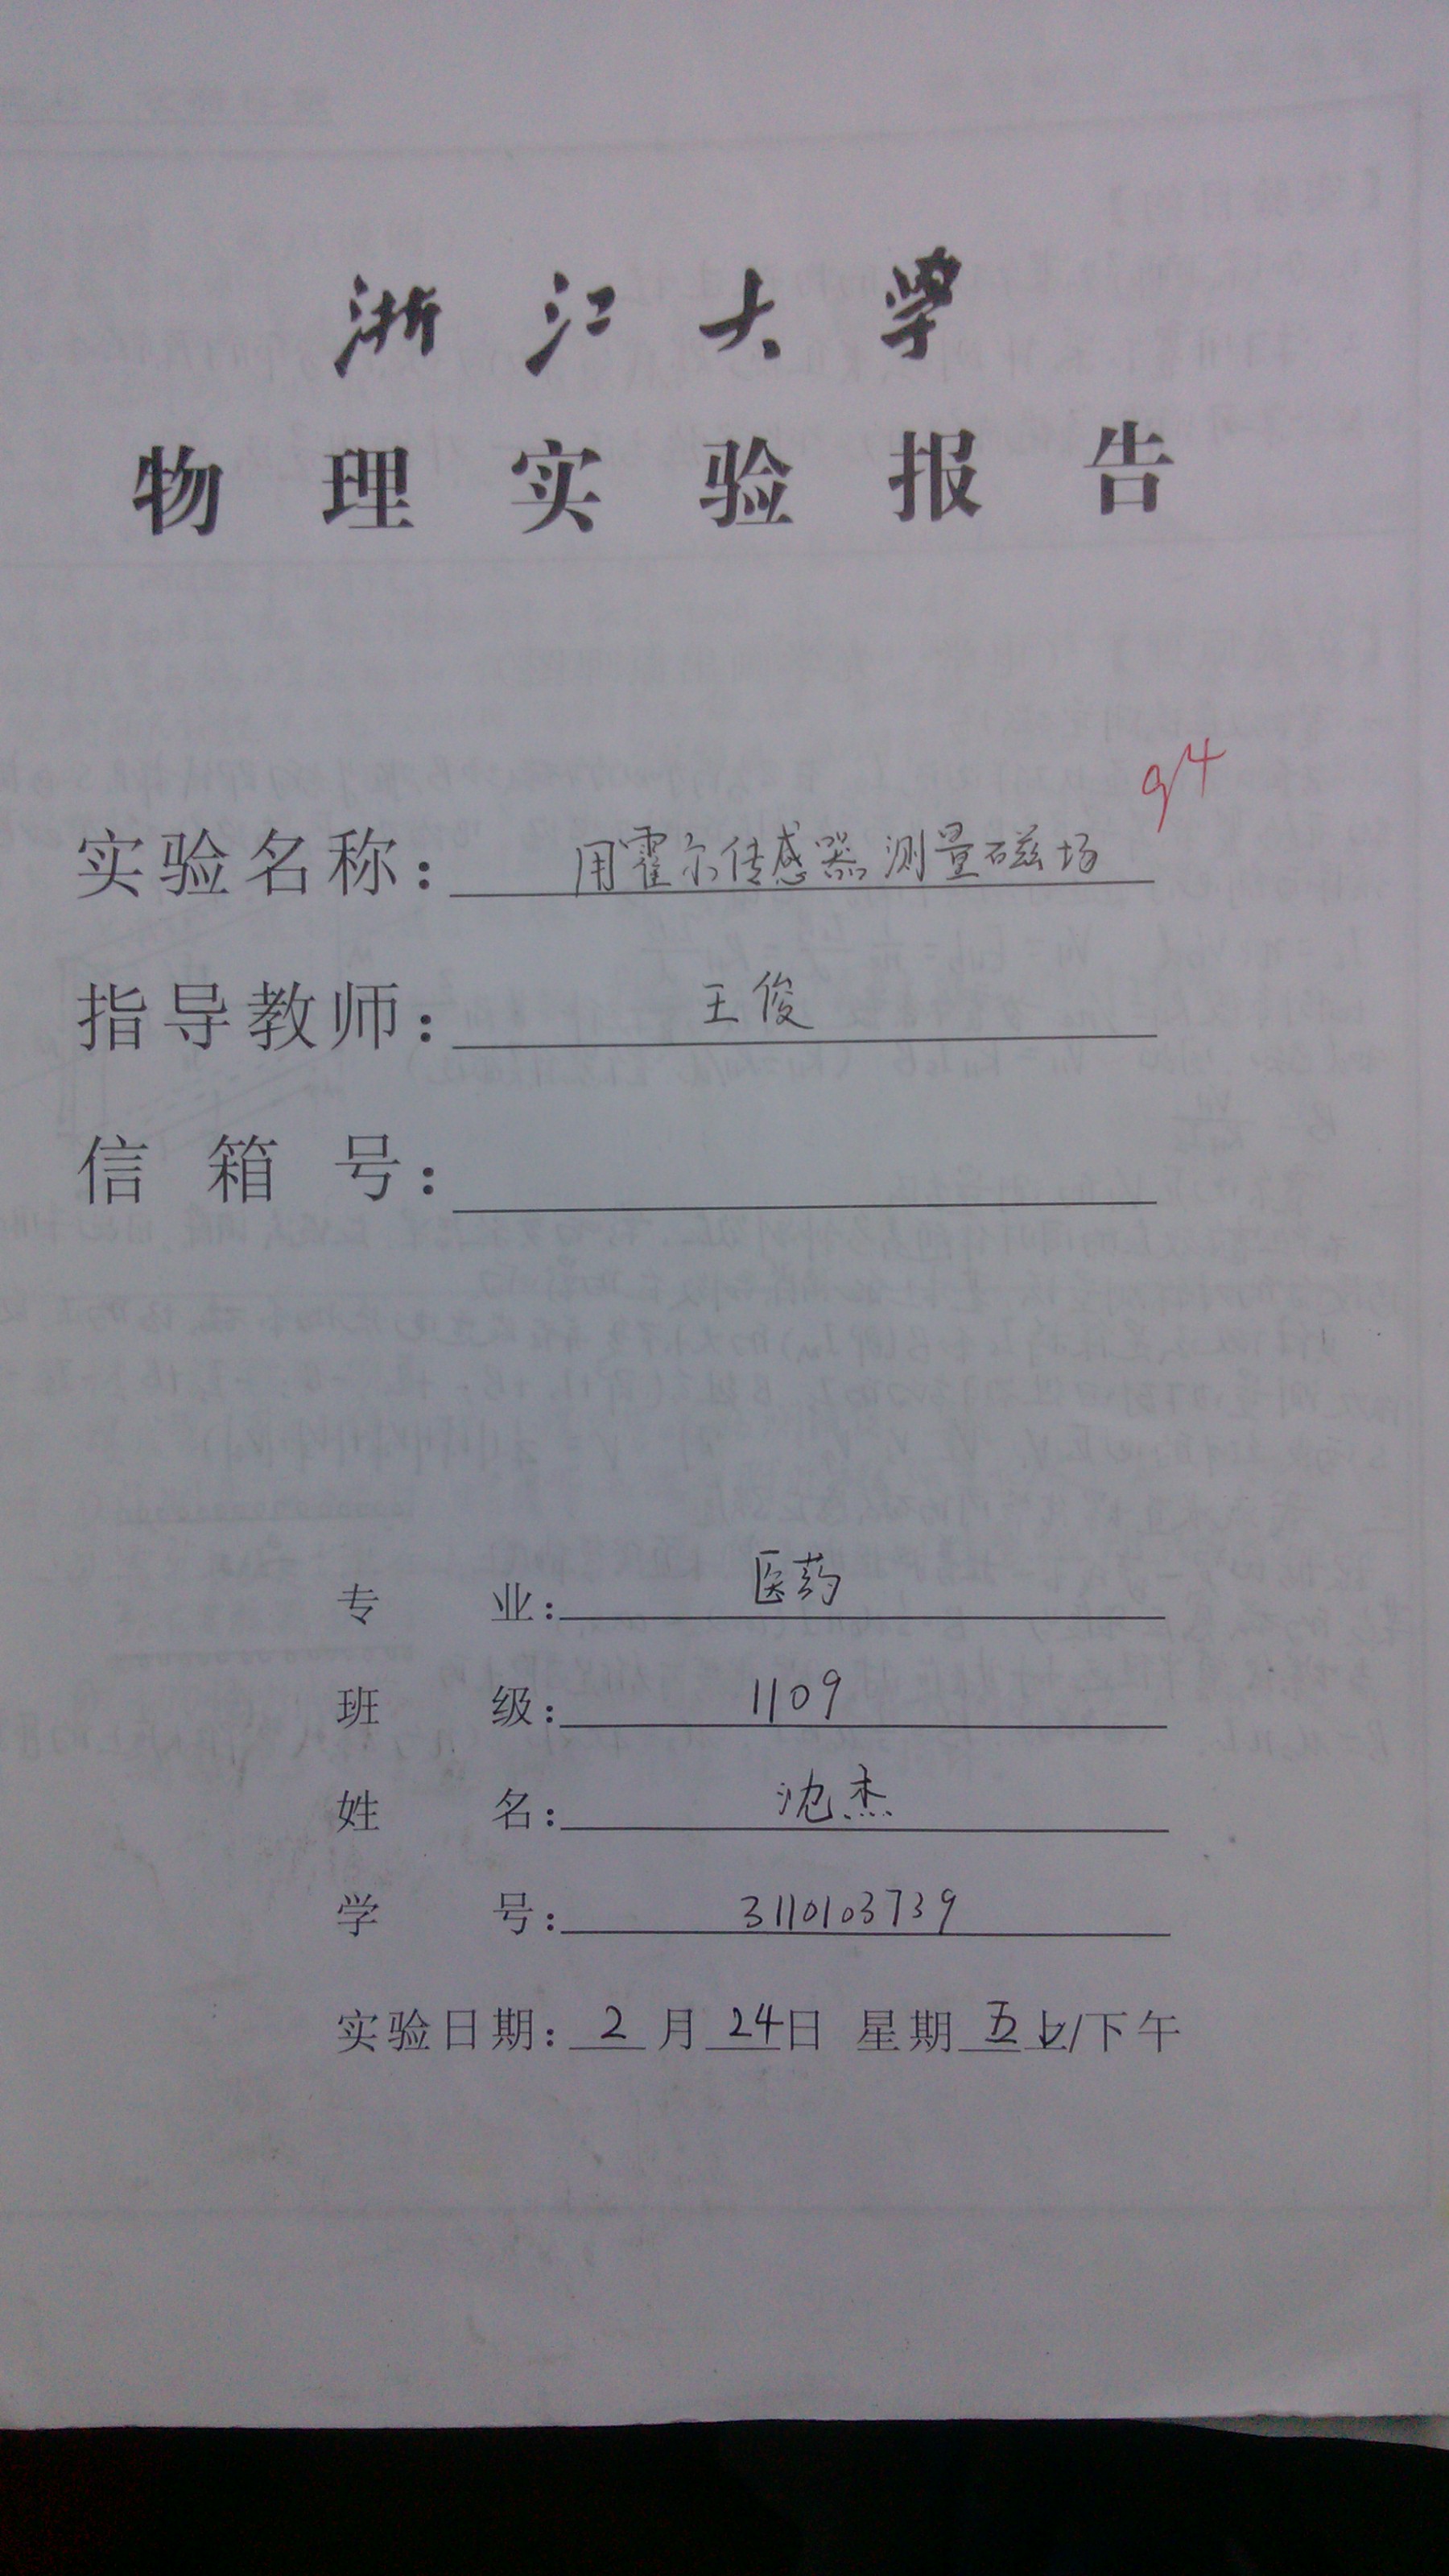 浙江大学
物理实验报告
94
实验名称：用霍尔传感器测量磁场
指导教师：王俊
信箱号：
专业：医药
班级：1109
姓名：沈杰
学号：3110103739
实验日期：2月24日 星期五上/下午